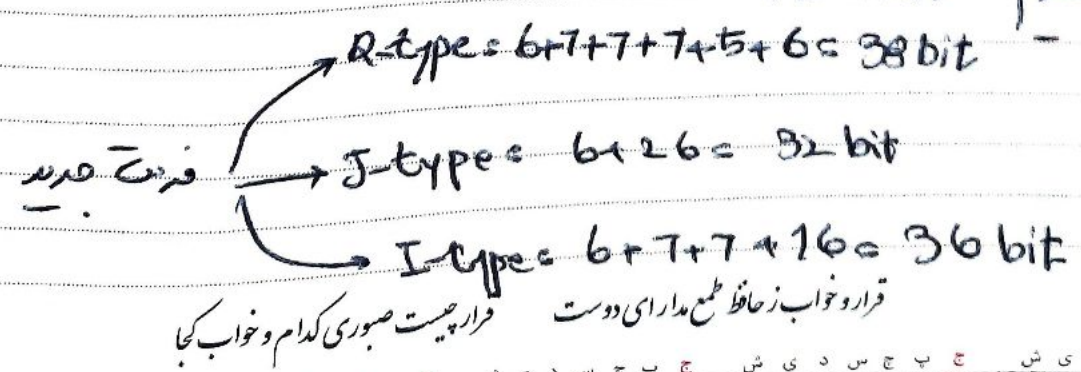 R-type = 6+7+7+7+5+6 = 38 bit
فرمت جدید
J-type = 6+26 = 32 bit
I-type = 6+7+7+16 = 36 bit
قرار و خواب ز حافظ طمع مدار ای دوست قرار چیست صبوری کدام و خواب کجا
ی ش ج پ چ س د ی ش ج پ چ س د